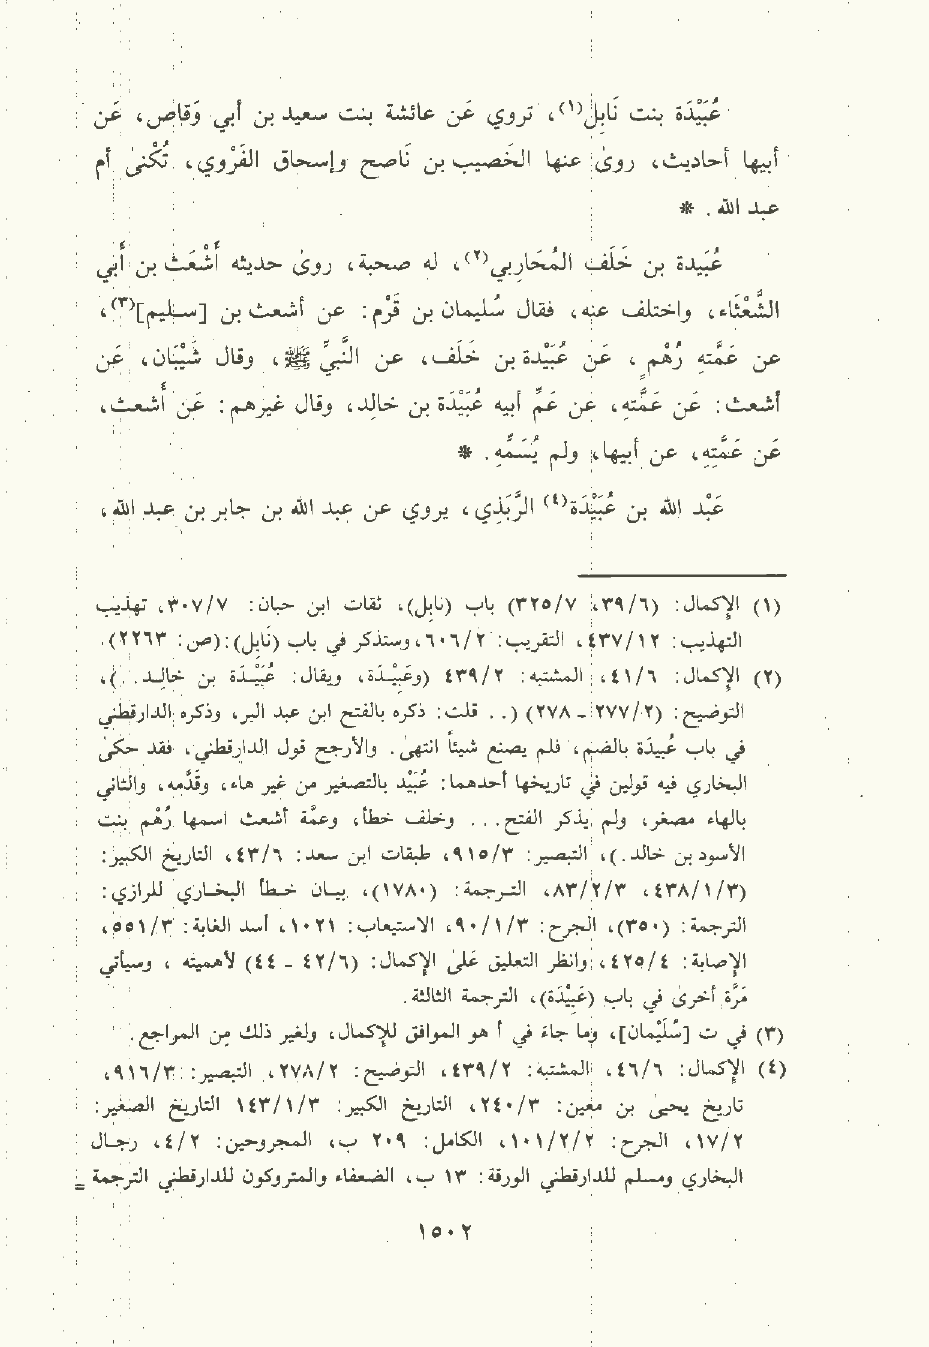 عُبَيْدَة بنت نَابِل(١)، تروي عَن عائشة بنت سعيد بن أبي وَقاص، عَن
أبيها أحاديث، روىٰ عنها الخَصيب بن نَاصح وإسحاق الفَرْوي، تُكْنىٰ أم
عبد الله. *
عُبَيدة بن خَلَف المُحَارِبي(٢)، له صحبة، روىٰ حديثه أَشْعَث بن أَبي
الشَّعْثَاء، واختلف عنه، فقال سُليمان بن قَرْم: عن أشعث بن [سليم](٣)،
عن عَمَّته رُهْم، عَن عُبَيْدة بن خَلَف، عن النَّبيِّ ﷺ، وقال شَيْبَان، عَن
أشعث: عَن عَمَّتِه، عن عَمِّ أبيه عُبَيْدَة بن خالد، وقال غيرهم: عَن أَشعث،
عَن عَمَّتِهِ، عن أبيها، ولم يُسَمِّهِ. *
عَبْد الله بن عُبَيْدَة(٤) الرَّبَذِي، يروي عن عبد الله بن جابر بن عبد الله،
(١) الإكمال: (٣٩/٦، ٣٢٥/٧) باب (نابِل)، ثقات ابن حبان: ٣٠٧/٧، تهذيب
التهذيب: ٤٣٧/١٢، التقريب: ٦٠٦/٢، وستذكر في باب (نَابِل):(ص: ٢٢٦٣).
(٢) الإكمال: ٤١/٦، المشتبه: ٤٣٩/٢ (وعَبِيْدَة، ويقال: عُبَيْدَة بن خالد..)،
التوضيح: (٢٧٧/٢ - ٢٧٨) (.. قلت: ذكره بالفتح ابن عبد البر، وذكره الدارقطني
في باب عُبيدة بالضم، فلم يصنع شيئاً انتهىٰ. والأرجح قول الدارقطني، فقد حكىٰ
البخاري فيه قولين في تاريخها أحدهما: عُبَيْد بالتصغير من غير هاء، وقدَّمه، والثاني
بالهاء مصغر، ولم يذكر الفتح... وخلف خطأ، وعمَّة أشعث اسمها رُهْم بنت
الأسود بن خالد.)، التبصير: ٩١٥/٣، طبقات ابن سعد: ٤٣/٦، التاريخ الكبير:
(٤٣٨/١/٣، ٨٣/٢/٣، الترجمة: (١٧٨٠)، بيان خطأ البخاري للرازي:
الترجمة: (٣٥٠)، الجرح: ٩٠/١/٣، الاستيعاب: ١٠٢١، أسد الغابة: ٥٥١/٣،
الإصابة: ٤٢٥/٤، وانظر التعليق عَلىٰ الإكمال: (٤٢/٦ - ٤٤) لأهميته، وسيأتي
مَرَّة أخرىٰ في باب (عَبِيْدَة)، الترجمة الثالثة.
(٣) في ت [سُلَيْمان]، وما جاء في أ هو الموافق للإكمال، ولغير ذلك مِن المراجع.
(٤) الإكمال: ٤٦/٦، المشتبه: ٤٣٩/٢، التوضيح: ٢٧٨/٢، التبصير: ٩١٦/٣،
تاريخ يحيىٰ بن معين: ٢٤٠/٣، التاريخ الكبير: ١٤٣/١/٣ التاريخ الصغير:
١٧/٢، الجرح: ١٠١/٢/٢، الكامل: ٢٠٩ ب، المجروحين: ٤/٢، رجال
البخاري ومسلم للدارقطني الورقة: ١٣ ب، الضعفاء والمتروكون للدارقطني الترجمة =
١٥٠٢